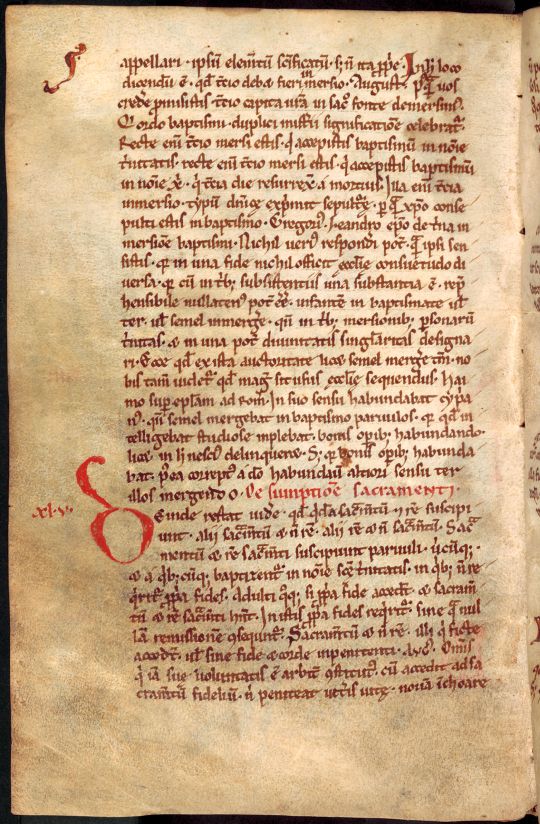 appellari · ipsum elem̄tum sc̄ificatū · s; n̄ ita ꝓp̄e · In h̄ loco
dicendū ē · qd̄ t̄cio debeā fieri in mersio · August' · Pꝰqua uos
credere ꝓmisistis · t̄cio capita ur̄a in sac̄ fonte demersim⁹ ·
Q̇ ordo baptismi · duplici mist̄ii significatiōe celebrat̄ ·
Recte eni t̄cio mersi estis · q̇ accepistis baptismū in noīe
t̄nitatis · recte eni t̄cio mersi estis · q̇ accepistis baptismū
in noīe x̄p̄i · q̇ t̄cia die resurrex̄ a mortuis · Illa eni t̄cia
inmersio · typū dn̄icę exp̄mit sepultꝰę · ꝑ qua xp̄o conse
pulti estis in baptismo · Gregori⁹ · Leandro ep̄o de t̄na in
mersiōe baptismi · Nichil ueri⁹ responderi pot̄ · q̄ ipsi sen
sistis · qr̄ in una fide nichil officit ęcc̄lię consuetudo di
uersa · qr̄ cū in t̄b; subsistentiis una substantia ē · rep̄
hensibile nullaten⁹ pot̄ ēē · infantē in baptismate uł
ter · uł semel inmerge · qn̄ in t̄b; mersionib; ꝑsonarū
t̄nitas · & in una pot̄ diuinitatis singlaritas designa
ri · Ecce qd̄ ex ista auctoritate licet semel merge tm̄ · no
bis tam̄ uidet̄ · qd̄ mag̃ sit usus ęcc̄lię sequendus · Hai
mo sup̄ ep̄lam ad rom̄ · In suo sensu habundabat cyp̄a
n⁹ · qn̄ semel mergebat in baptismo paruulos · qr̄ qd̄ in
telligebat studiose inplebat · bonis opib; habundando ·
licet in h̄ nesci⁹ delinqueret · S; qr̄ bonis opib; habunda
bat · ꝓpea correpꝰ a dō habundauit altiori sensu ter
illos mergendo · De sumptione sacramenti ·
xl·v· Deinde restat uide · qd̄ q̇da sacr̄mtū · n̄ re suscipi
unt · alii sacr̄mtū & n̄ re · alii re & n̄ sacr̄mtū · Sac̄a
mentū & re sacr̄mti suscipiunt paruuli · uicūq; ·
& a q̇b;cūq; baptizent̄ in noīe sc̄ę t̄nitatis · in q̇b; n̄ re
q̇rit̄ ꝓp̄a fides · Adulti q̇q; si ꝓp̄a fide accedt̄ · & sac̄am̄
tū & re sacr̄mti hn̄t · In istis ꝓp̄a fides req̇rit̄ · sine q̄ nul
la remissionē ꝯsequunt̄ · Sacramtū & n̄ re · illi q̇ ficte
accedt̄ · uł sine fide & corde inpenitenti · Avg' · Om̄is
q̇ ia sue uoluntatis ē arbiter ꝯstitut⁹ · cū accedit ad sa
cramtū fideliū · n̄ peniteat uet̄is uitę · nouā īchoare